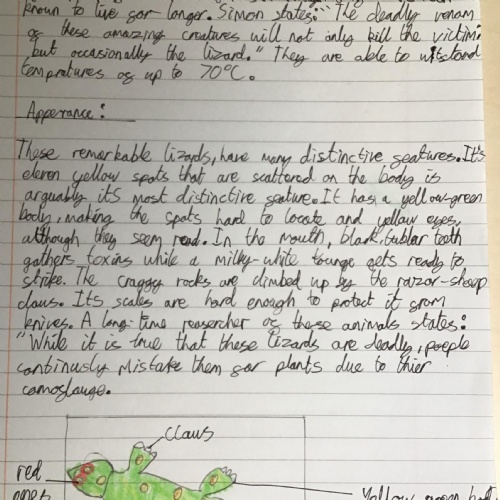 known to live for longer. Simon states: "The deadly venam
of these amazing creatures will not only kill the victim:
but occasionally the lizard." They are able to witstand
tempratures of up to 70°C.
Apperance:
These remarkable lizards, have many distinctive features. It's
eleven yellow spots that are scattered on the body is
arguably its most distinctive feature. It has a yellow-green
body, making the spots hard to locate and yellow eyes,
although they seem read. In the mouth, blank, tublar teeth
gathers toxins while a milky-white tounge gets ready to
strike. The craggy rocks are climbed up by the razor-sharp
claws. Its scales are hard enough to protect it from
knives. A long-time reasercher of these animals states:
"While it is true that these lizards are deadly, people
continusly mistake them for plants due to thier
camoflauge.
claws
red
eyes
Yellow green